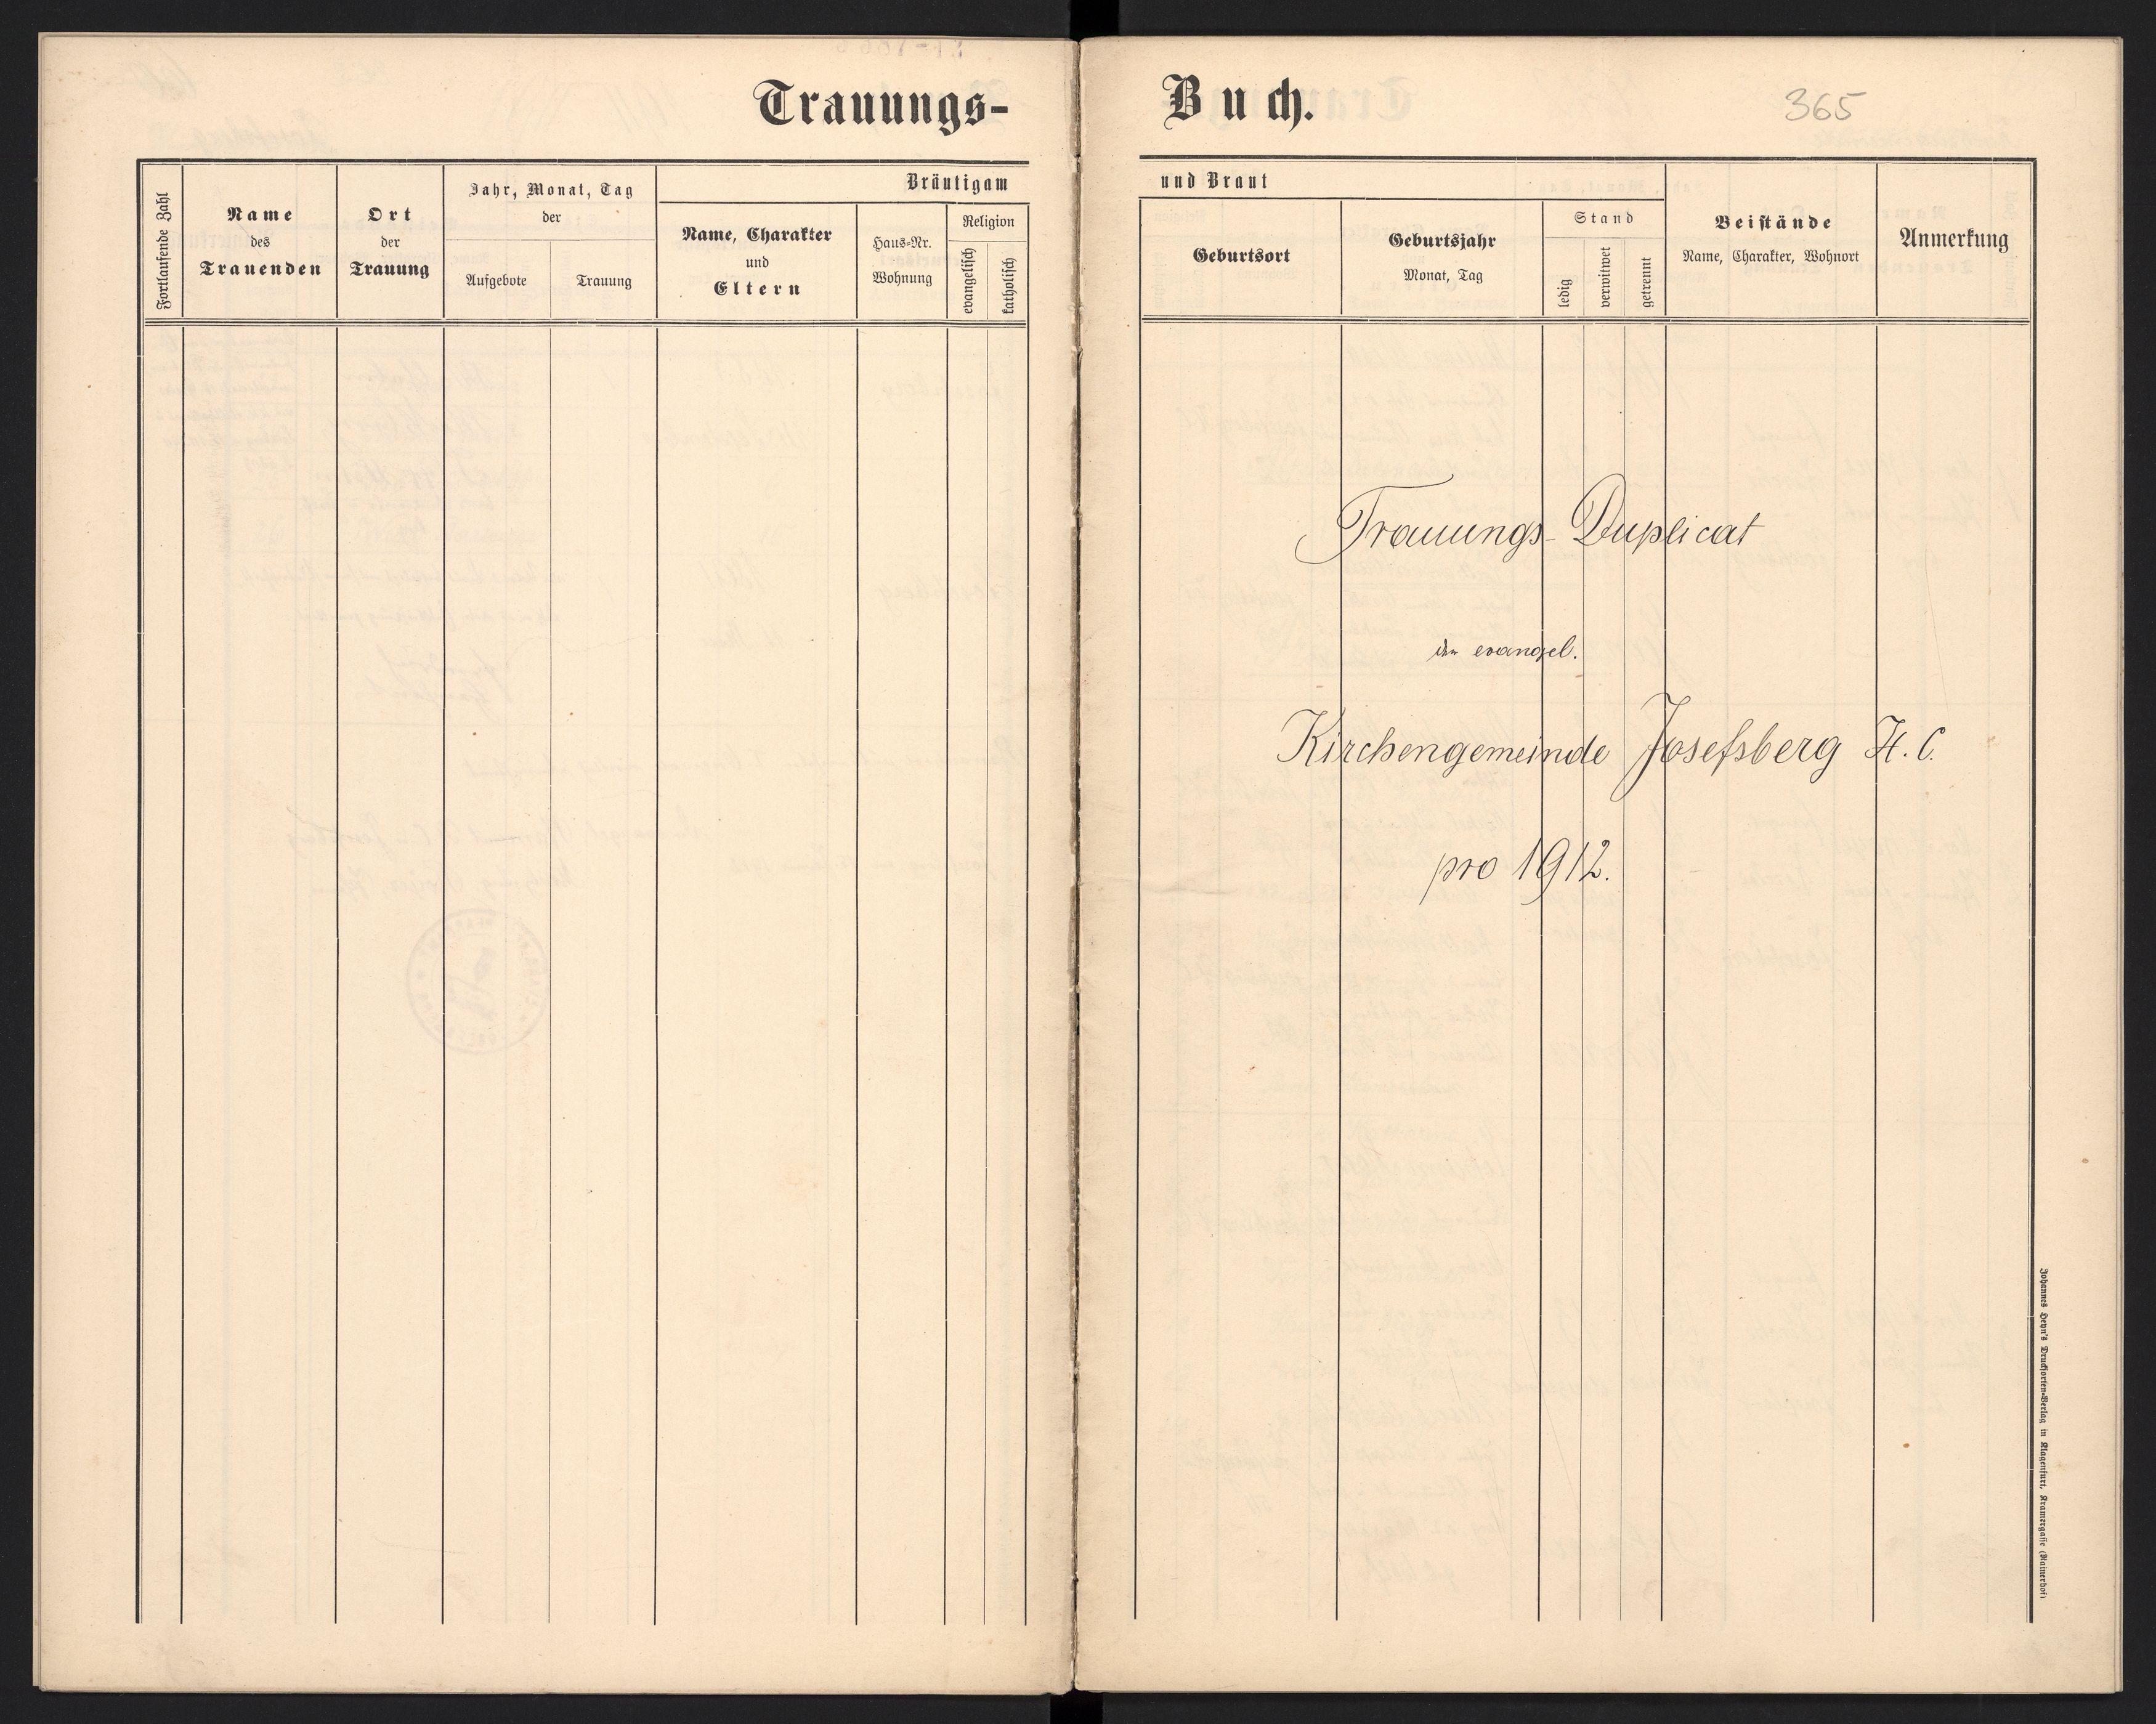 Trauungs-
Buch.
365
Fortlaufende Zahl
Name
des
Trauenden
Ort
der
Trauung
Jahr, Monat, Tag
der
Aufgebote
Trauung
Bräutigam
Name, Charakter
und
Eltern
Haus-Nr.
Wohnung
Religion
evangelisch
katholisch
und Braut
Geburtsort
Geburtsjahr
Monat, Tag
Stand
ledig
verwitwet
getrennt
Beistände
Name, Charakter, Wohnort
Anmerkung
Trauungs-Duplicat
der evangel.
Kirchengemeinde Josefsberg H. C.
pro 1912.
Johannes Heyn's Drucksorten-Verlag in Klagenfurt, Kramergasse